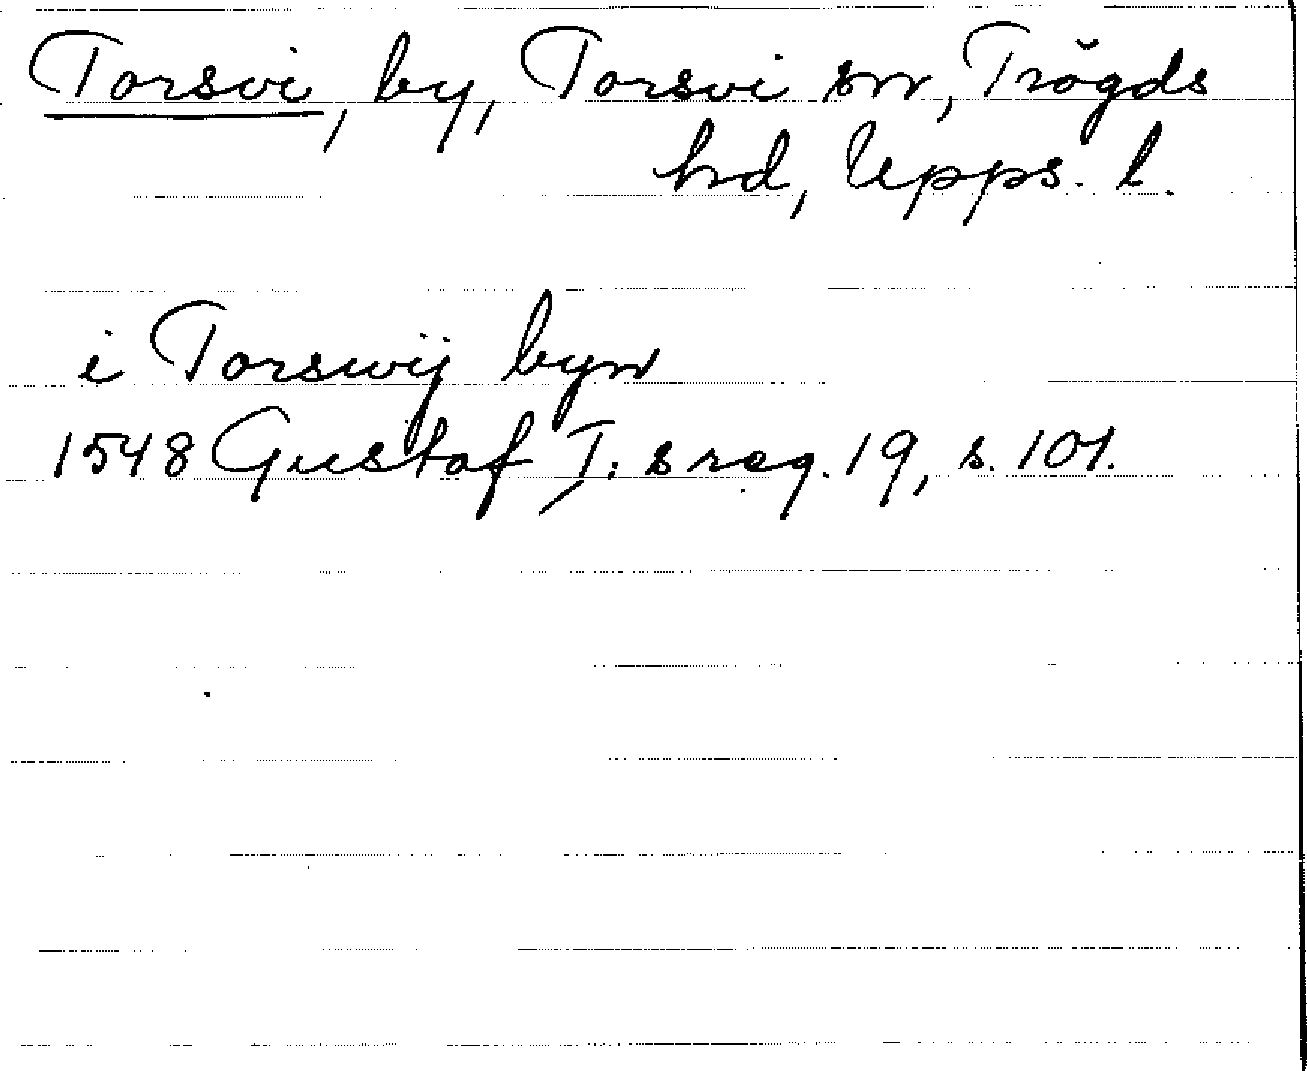 Torsvi, by, Torsvi sn, Trögds
hd, Upps. l.
i Torswij byn
1548 Gustaf I:s reg. 19, s. 101.